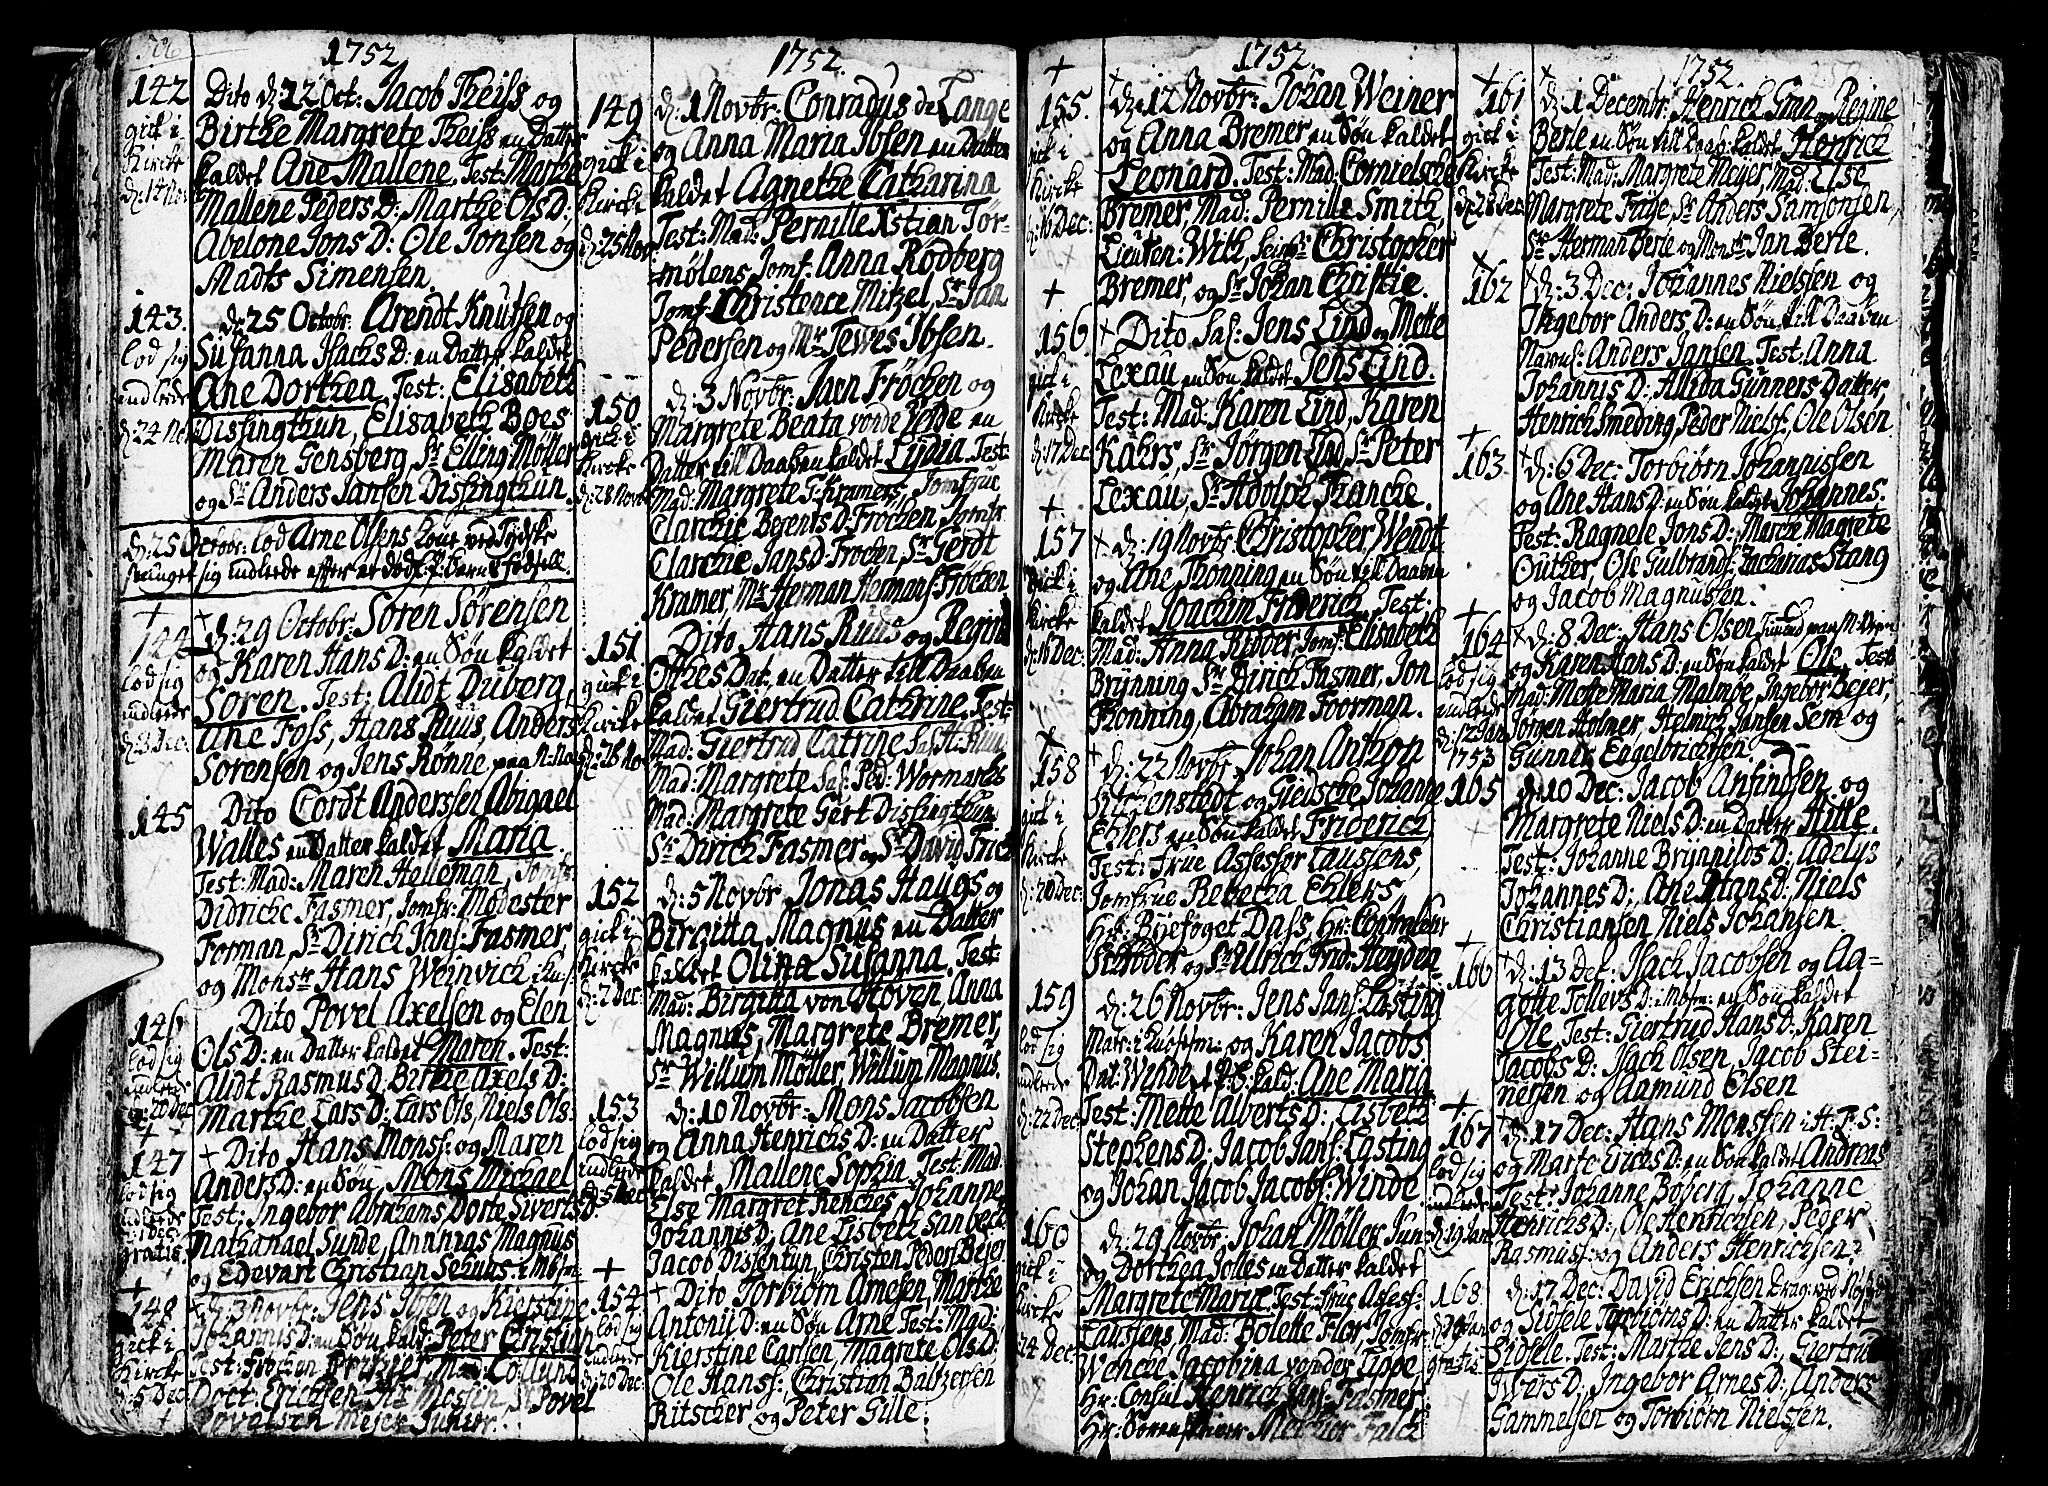 1752.
142
gick i
Kircke
Dito d: 22 Oct: Jacob Theiss og
Birthe Margrete Theiss en Datter
kaldet Ane Mallene. Test: Marthe
Mallene Peders D: Marthe Ols D:
Abelone Jons D: Ole Jonsen og
Madts Simensen.
143.
lod sig
indlede
d: 24 Nov
d: 25 Octobr: Arendt Knutsen og
Susanna Isachs D: en Datter kaldet
Ane Dorthea. Test: Elisabeth
Dissingthun, Elisabeth Boes
Maren Gensberg, Sr Elling Møller
og Sr Anders Jansen Dissingthun.
d: 25 Octobr: lod Arne Olsens Kone ved Tydske
sig indlede efter et dødf: Barns fødsell.
144
lod sig
indlede
d: 3 Dec:
d: 29 Octobr: Søren Sørensen
og Karen Hans D: en Søn kaldet
Søren. Test: Alidt Duberg,
Ane Foss, Hans Ruus, Anders
Sørensen og Jens Rønne paa
145
Dito Cordt Anderssen Abigael
Walles en Datter kaldet Maria.
Test: Mad: Maren Helleman, Jomfr
Didriche Fasmer, Jomfr: Modester
Forman, Sr Dirich Jans: Fasmer,
og Monsr Hans Weinvich
146
lod sig
indlede
d: 20 Dec
Dito Povel Axelsen og Elen
Ols D: en Datter kaldet Maren. Test:
Alidt Rasmus D, Birthe Axels D:
Marthe Lars D: Lars Ols, Niels Ols:
147
lod sig
indlede
gratis
Dito Hans Mons: og Maren
Anders D: en Søn, Mons Michael
Test: Ingebor Abrahams Dorte Siverts D:
Nathanael Sunde, Magnus
og Edevart Christian
148
gick i
Kircke
d: 5 Dec
d: 3 Novbr: Jens Ibsen og Kierstine
Johannis D: en Søn kald: Peter Christian
Test: Frøchen
Doct: Erichsen Povel
1752.
149
gick i
Kircke
d: 25 Nov
d: 1 Novbr: Conradus de Lange
og Anna Maria Ibsen en Datter
kaldet Agnethe Catharina
Test: Mad: Pernille Xstian Tør-
mølens, Jomf: Anna Rødberg
Jomf: Christence Mitzel, Sr Jan
Pedersen og Mr Tewes Ibsen.
150
gick i
Kircke
d: 28 Nov
d: 3 Novbr: Jaen Frøchen og
Margrete Beata en
Datter till Daaben kaldet Lydia. Test:
Mad: Margrete G: Kramers, Jomfrue
Clarchie Berents D: Frøchen, Jomfr
Clarchie Jans D: Frøchen, Sr Gerdt
Kramer, Mr Herman Hermans: Frøchen
151
gick i
Kircke
d: 28 Nov
Dito Hans Ruus og Regina
Dat: en Datter till Daaben
kaldet Giertrud Cathrine. Test:
Mad: Giertrud Catrine Sal: H: Ruus
Mad: Margrete Sal: Ped: Wormarchs
Mad: Margrete Gert Dissingthun
Sr Dirich Fasmer og Sr David Friis
152
gick i
Kircke
d: 2 Dec:
d: 5 Novbr Jonas Haugs og
Birgitta Magnus en Datter
kaldet Olina Susanna. Test:
Mad: Birgitta von Hoven, Anna
Magnus, Margrete Bremer,
Sr Willum Møller, Willum Magnus,
153
lod sig
indlede
d: 5 Dec
d: 10 Novbr: Mons Jacobsen
og Anna Henrichs D: en Datter
kaldet Mallene Sophia. Test: Mad
Else Margret Renches, Johanne
Johannis D:, Ane Lisbeth Sanbech
Jacob Disentun, Christen Peders Bejer
154
lod sig
indlede
d: 20 Dec:
Dito Torbiørn Arnesen, Marthe
Antonii D: en Søn Arne. Test: Mad:
Kierstine Carlsen, Magrete Ols D:
Ole Hans: Christian Baltzersen
Ritscher og Peter Gille.
1752.
155.
gick i
Kircke
d: 16 Dec:
d: 12 Novbr: Johan Weiner
og Anna Bremer en Søn kaldet
Leonard. Test: Mad: Cornielsche
Bremer, Mad: Pernille Smith,
Lieuten: With, Christopher
Bremer, og Sr Johan Christie.
156
gick i
Kircke
d: 17 Dec
Dito Sal: Jens Lind og Mette
Lexau en Søn kaldet Jens Lind.
Test: Mad: Karen Lind, Karen
Kahrs, Sr Jørgen Lind, Sr Peter
Lexau, Sr Adolph Francke.
157
gick i
Kircke
d: 16 Dec:
d: 19 Novbr Christopher Wendt
og Ane Thonning en Søn till Daaben
kaldet Joachim Friderich. Test:
Mad: Anna Ridder, Jomfr: Elisabeth
Brynning Sr Dirich Fasmer, Jon
Thonning, Abraham Foorman.
158
gick i
Kircke
d: 20 Dec:
d: 22 Novbr Johan Anthon
og Giedsche Johanne
Ehlers en Søn kaldet Friderich
Test: Frue Assessor Caussens,
Jomfrue Rebecka Ehlers,
Hr: Byefoget Dass, Hr:
Schrøder og Sr Ullrich Frid: Heyden
159
lod sig
indlede
d: 22 Dec:
d: 26 Novbr: Jens Jans: Lasting
og Karen Jacobs
Dat: Winde kald: Ane Maria
Test: Mette Alberts D: Lisbeth
Stephens D: Jacob Jans: Lasting
og Johan Jacob Jacobs: Winde
160
gick i
Kircke
24 Dec:
d: 29 Novbr Johan Møller Jun:
og Dorthea Jolles en Datter kaldet
Margrete Marie. Test: Frue Assess:
Caussens, Mad: Bolette Flor, Jomfr:
Wenche Jacobina von der Lippe,
Hr: Consul Henrich Jans: Fasmer
Hr: Melchior Falch
1752.
161
gick i
Kircke
d: 28 Dec
d: 1 Decembr: Henrich Gran og Regine
Berle en Søn till Daab: kaldet Henrich
Test: Mad: Margrete Meyer, Mad: Else
Margrete Fage, Sr Anders Samsonsen,
Sr Herman Berle og Monsr Jan Berle.
162
d: 3 Dec: Johannes Nielsen og
Ingebor Anders D: en Søn till Daaben
Navnl: Anders Jansen. Test: Anna
Johannis D: Allida Gunners Datter,
Henrich Smeding, Peder Niels:, Ole Olsen
163
d: 6 Dec: Torbiørn Johannissen
og Ane Hans D: en Søn kaldet Johannes.
Test: Ragnele Jons D: Marthe Magrete
Outher, Ole Gulbrands: Zacharias Stang
og Jacob Magnussen.
164
lod sig
indlede
d: 12 Jan
1753
d: 8 Dec: Hans Olsen
og Karen Hans D: en Søn kaldet Ole. Test:
Mad: Mette Maria Malmøe, Ingebor Bejer,
Jørgen Holmer, Helmich Jansen Sem og
Gunner Engelbrichtsen
165
d: 10 Dec: Jacob Ansingsen og
Margrete Niels D: en Datter Hille.
Test: Johanne Brynnilds D: Adelys
Johannes D:, Ane Hans D: Niels
Christiansen, Niels Johansen.
166
d: 13 Dec: Isach Jacobsen og Aa-
gotte Tollevs D: en Søn kaldet
Ole. Test: Giertrud Hans D: Karen
Jacobs D: Isach Olsen, Jacob Stei-
negen og Aamund Elsen
167
lod sig
indlede
d: 19 Jan
d: 17 Dec: Hans Monsen i H: P: S:
og Marte Erichs D: en Søn kaldet Andreas
Test: Johanne Boberg, Johanne
Henrichs D:, Ole Henrichsen, Peder
Rasmus: og Anders Henrichsen.
168
gratis
d: 17 Dec: David Erichsen
og Sidsele Torbiørns D: en Datter kaldet
Sidsele. Test: Marthe Jens D:, Giertrud
Ivers D:, Ingebor Arnes D:, Anders
Gammelsen og Torbiørn Nielsen.